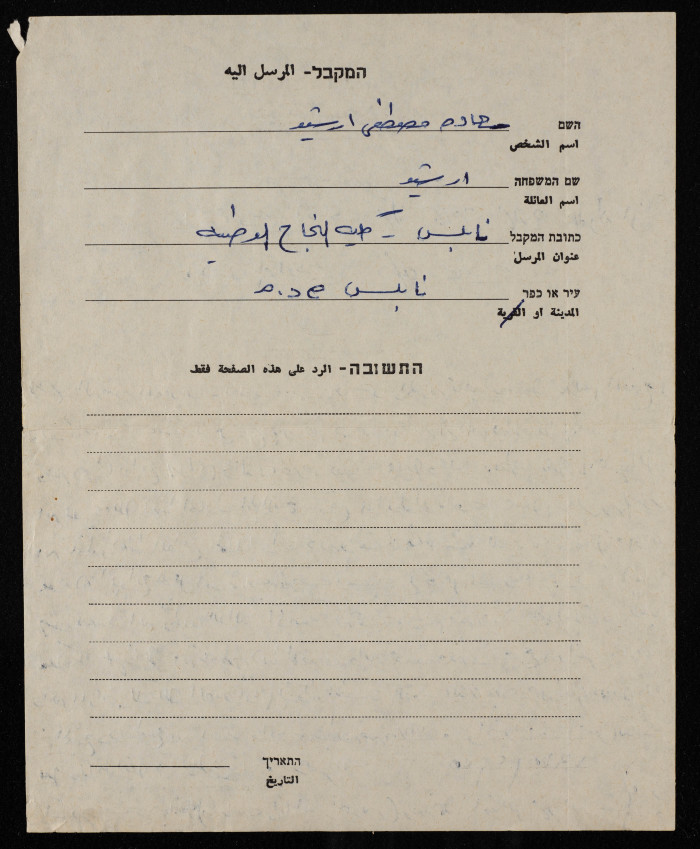 המקבל - المرسل اليه
השם مصطفى ارشيد
اسم الشخص
שם המשפחה ارشيد
اسم العائلة
כתובת המקבל نابلس - كلية النجاح الوطنية
عنوان المرسل
עיר או כפר نابلس ص.د.م
المدينة او القرية
התשובה - الرد على هذه الصفحة فقط
התאריך
التاريخ